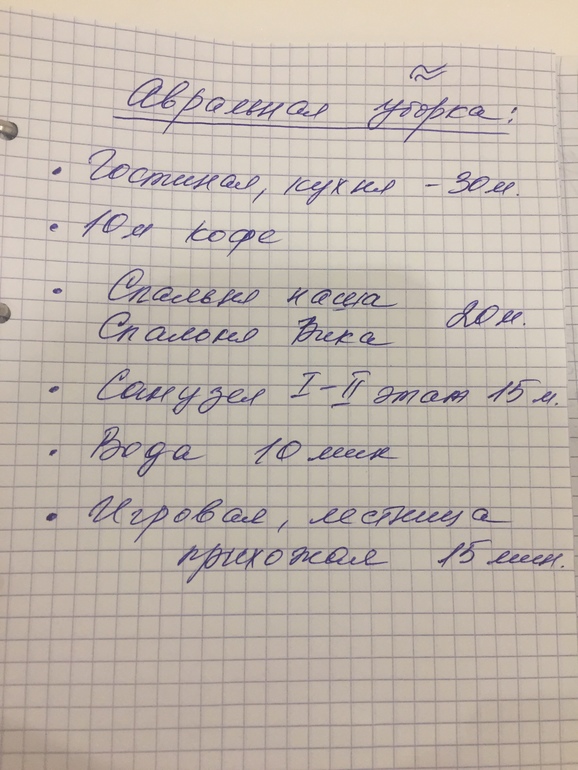 ≈
Авральная уборка:
• Гостиная, кухня - 30 м.
• 10 м кофе
• Спальня наша 20 м.
Спальня Вика
• Санузел I-II этаж 15 м.
• Вода 10 мин
• Игровая, лестница
прихожая 15 мин.